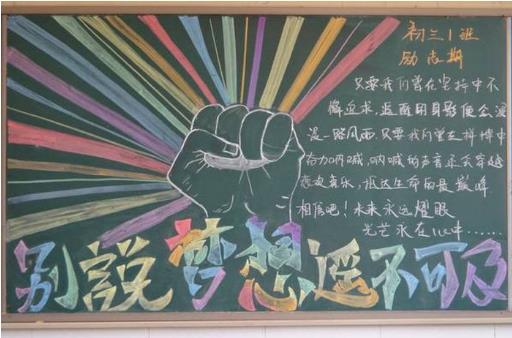 初三1班
励志期
只要我们曾在坚持中不
懈追求,
风雨,只要我们曾在拼搏中
奋力呐喊,呐喊的声音还会穿越
抵达生命的最巅峰
相信吧!未来永远耀眼
光芒永在心中......
别說梦想遥不可及